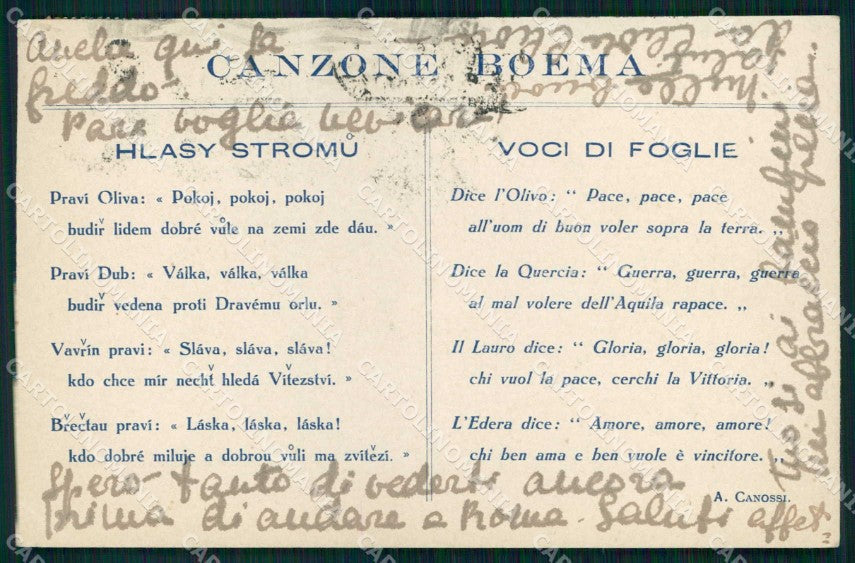 Anche qui fa
freddo
Pare voglia nevicare
CANZONE BOEMA
HLASY STROMŮ
Praví Oliva: « Pokoj, pokoj, pokoj
budiř lidem dobré vůle na zemi zde dáu. »
Praví Dub: « Válka, válka, válka
budiř vedena proti Dravému orlu. »
Vavřín pravi: « Sláva, sláva, sláva!
kdo chce mír nechť hledá Vítezství. »
Břečtau praví: « Láska, láska, láska!
kdo dobré miluje a dobrou vůli ma zvítězí. »
VOCI DI FOGLIE
Dice l'Olivo: “ Pace, pace, pace
all'uom di buon voler sopra la terra. „
Dice la Quercia: “ Guerra, guerra, guerra
al mal volere dell'Aquila rapace. „
Il Lauro dice: “ Gloria, gloria, gloria!
chi vuol la pace, cerchi la Vittoria. „
L'Edera dice: “ Amore, amore, amore!
chi ben ama e ben vuole è vincitore. „
A. CANOSSI.
Spero tanto di vederti ancora
prima di andare a Roma. Saluti affet.
CARTOLINOMANIA